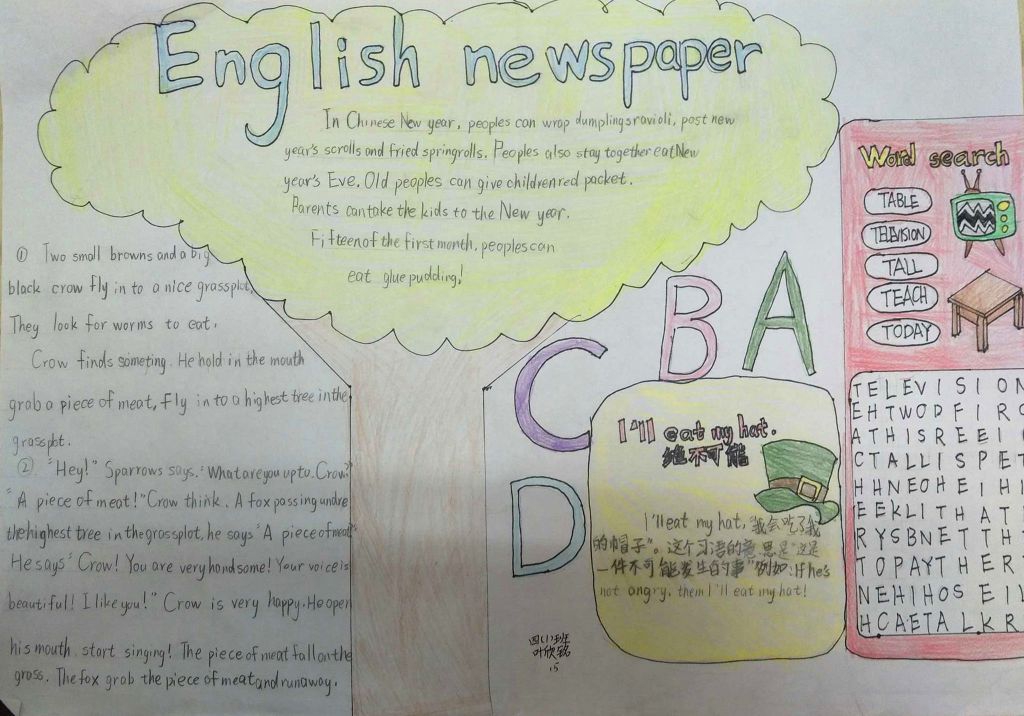 English newspaper
In Chinese New year, peoples can wrap dumplings ravioli, post new
year's scrolls and fried springrolls. Peoples also stay together eat New
year's Eve. Old peoples can give children red packet.
Parents can take the kids to the New year.
Fifteen of the first month, peoples can
eat glue pudding!
① Two small browns and a big
black crow fly in to a nice grassplot,
They look for worms to eat.
Crow finds someting. He hold in the mouth
grab a piece of meat, fly in to a highest tree in the
grassplot.
② "Hey!" Sparrows says. "What are you up to. Crow?"
"A piece of meat!" Crow think. A fox passing undre
the highest tree in the grassplot, he says "A piece of meat"
He says "Crow! You are very handsome! Your voice is
beautiful! I like you!" Crow is very happy. He open
his mouth start singing! The piece of meat fall on the
grass. The fox grab the piece of meat and run away.
A
B
C
D
I'll eat my hat.
绝不可能
I'll eat my hat, 我会吃了我
的帽子"。这个习语的意思是"这是
一件不可能发生的事"例如:If he's
not angry. them I'll eat my hat!
四(1)班
叶欣铭
.5
Word search
TABLE
TELEVISION
TALL
TEACH
TODAY
TELEVISION
EHTWODFIRC
ATHISREEI
CTALLISPET
HHNEOHEIHI
EEKLITHATI
RYSBNETTH
TOPAYTHER
NEHIHOSEIL
HCAETALKR